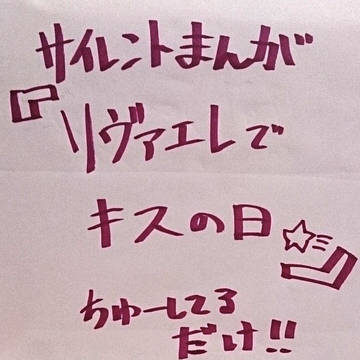 サイレントまんが
『リヴァエレで
キスの日☆』
ちゅーしてる
だけ!!